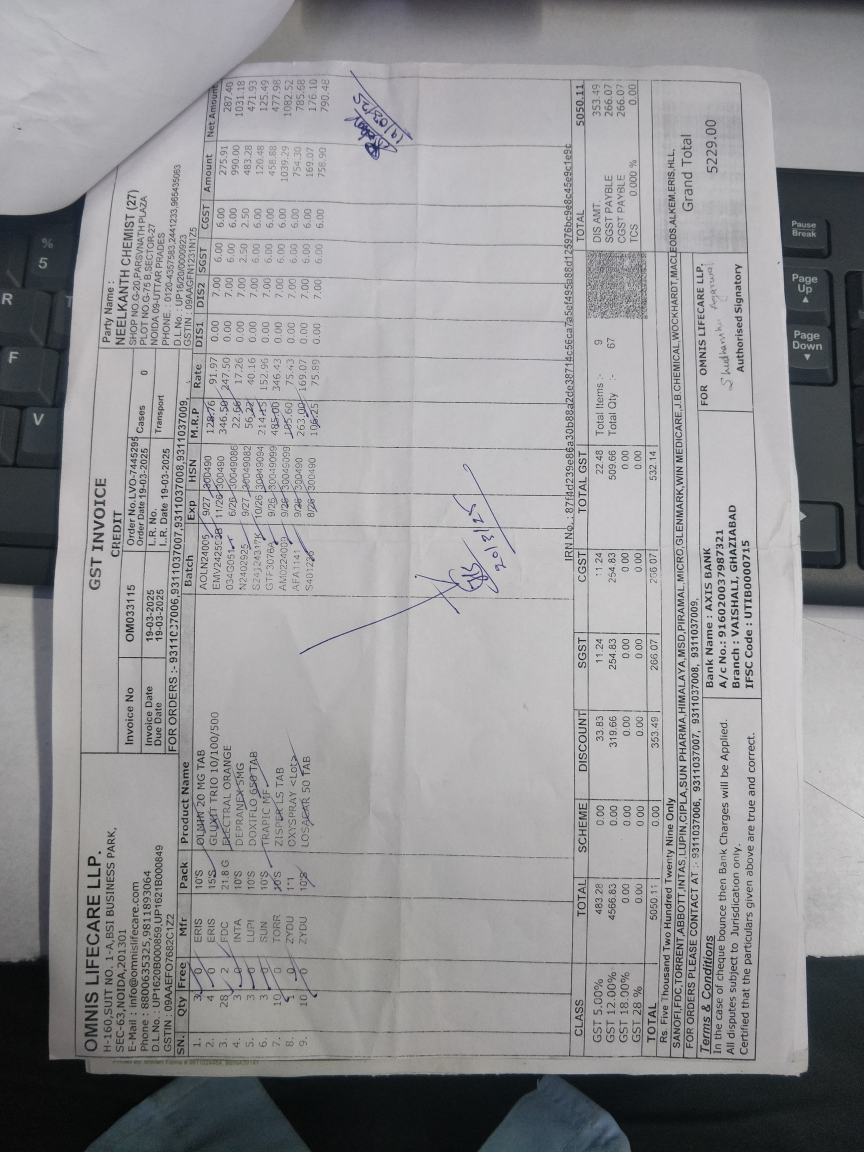 OMNIS LIFECARE LLP.
H-160,SUIT NO. 1-A,BSI BUSINESS PARK,
SEC-63,NOIDA,201301
E-Mail : info@omnislifecare.com
Phone : 8800635325,9811893064
D.L.No. : UP1620B000859,UP1621B000849
GSTIN : 09AAEFO7682C1Z2
GST INVOICE
CREDIT
Invoice No OM033115 Order No.LVO-7445295
Order Date 19-03-2025 Cases 0
Invoice Date 19-03-2025 L.R. No. Transport
Due Date 19-03-2025 L.R. Date 19-03-2025
FOR ORDERS :- 9311037006,9311037007,9311037008,9311037009,
Party Name :
NEELKANTH CHEMIST (27)
SHOP NO.G-20,PARSVNATH PLAZA
PLOT NO.G-75 B,SECTOR-27
NOIDA 09-UTTAR PRADES
PHONE. : 0120-4357583,2441233,965435063
D.L.No. : UP1620/0000923
GSTIN : 09AAGFN1231N1Z5
SN. Qty Free Mfr Pack Product Name Batch Exp HSN M.R.P Rate DIS1 DIS2 SGST CGST Amount Net Amount
1. 3 0 ERIS 10'S OLMIN 20 MG TAB AOLN24005 9/27 300490 128.76 91.97 0.00 7.00 6.00 6.00 275.91 287.40
2. 4 0 ERIS 15'S GLUXIT TRIO 10/100/500 11/26 300490 346.50 247.50 0.00 7.00 6.00 6.00 990.00 1031.18
3. 28 2 FDC 21.8 G ELECTRAL ORANGE 6/26 30049086 22.66 17.26 0.00 7.00 2.50 2.50 483.28 471.93
4. 3 0 INTA 10'S DEPRANEX 5MG N2402925 9/27 30049082 40.16 0.00 7.00 6.00 6.00 120.48 125.49
5. 3 0 LUPI 10'S DOXIFLO 650 TAB 10/26 30049094 152.96 0.00 7.00 6.00 6.00 458.88 477.98
6. 3 0 SUN 10'S TRAPIC MF 9/26 30049099 485.00 346.43 0.00 7.00 6.00 6.00 1039.29 1082.52
7. 10 0 TORR 10'S ZISPER LS TAB 9/26 30049099 105.60 75.43 0.00 7.00 6.00 6.00 754.30 785.68
8. 0 ZYDU 1*1 OXYSPRAY <Lot> AFA1141 9/26 300490 263.00 169.07 0.00 7.00 6.00 6.00 169.07 176.10
9. 10 0 ZYDU 10'S LOSACAR 50 TAB 8/26 300490 106.25 75.89 0.00 7.00 6.00 6.00 758.90 790.48
19/03/25
20/3/25
IRN No.: 87f4d239e86a30b88a2de38714c56ca7a5ef495a88d125976bc9e8c45e9c1e9c
CLASS TOTAL SCHEME DISCOUNT SGST CGST TOTAL GST
GST 5.00% 483.28 0.00 33.83 11.24 11.24 22.48
GST 12.00% 4566.83 0.00 319.66 254.83 254.83 509.66
GST 18.00% 0.00 0.00 0.00 0.00 0.00 0.00
GST 28 % 0.00 0.00 0.00 0.00 0.00 0.00
TOTAL 5050.11 0.00 353.49 266.07 266.07 532.14
Total Items :- 9
Total Qty :- 67
TOTAL 5050.11
DIS AMT. 353.49
SGST PAYBLE 266.07
CGST PAYBLE 266.07
TCS 0.000 % 0.00
Rs. Five Thousand Two Hundred Twenty Nine Only
SANOFI,FDC,TORRENT,ABBOTT,INTAS,LUPIN,CIPLA,SUN PHARMA,HIMALAYA,MSD,PIRAMAL,MICRO,GLENMARK,WIN MEDICARE,J.B.CHEMICAL,WOCKHARDT,MACLEODS,ALKEM,ERIS,HLL,
FOR ORDERS PLEASE CONTACT AT :- 9311037006, 9311037007, 9311037008, 9311037009,
Grand Total
5229.00
Terms & Conditions
In the case of cheque bounce then Bank Charges will be Applied.
All disputes subject to Jurisdication only.
Certified that the particulars given above are true and correct.
Bank Name : AXIS BANK
A/c No.: 916020037987321
Branch : VAISHALI, GHAZIABAD
IFSC Code : UTIB0000715
FOR OMNIS LIFECARE LLP.
Shudhanshu Agarwal
Authorised Signatory
%
5
R
T
F
V
Pause
Break
Page
Up
Page
Down